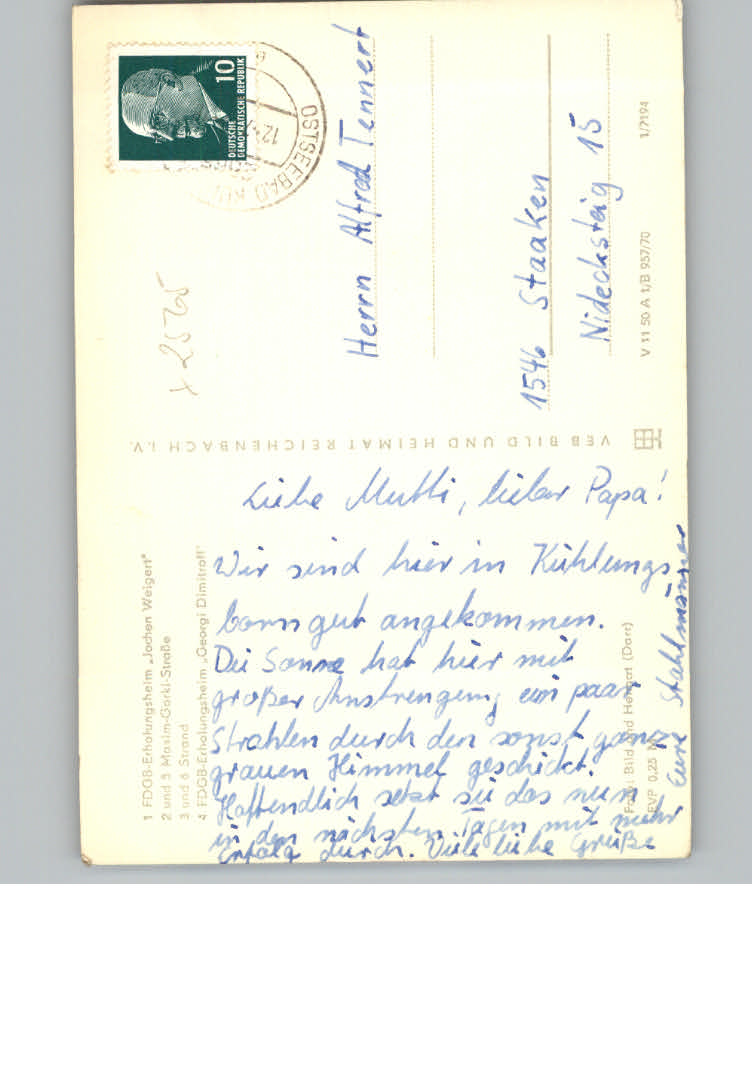 10
DEUTSCHE
DEMOKRATISCHE REPUBLIK
OSTSEEBAD
12
Herrn Alfred Tennert
1546 Staaken
Nidecksteig 15
V 11 50 A 1/B 937/70
1/2194
x 2525
VEB BILD UND HEIMAT REICHENBACH I. V.
1 FDGB-Erholungsheim „Jochen Weigert"
2 und 5 Maxim-Gorki-Straße
3 und 6 Strand
4 FDGB-Erholungsheim „Georgi Dimitroff"
Liebe Mutti, lieber Papa!
Wir sind hier in Kühlungs-
born gut angekommen.
Die Sonne hat hier mit
großer Anstrengung ein paar
Strahlen durch den sonst ganz
grauen Himmel geschickt.
Hoffendlich setzt sie das nun
in den nächsten Tagen mit mehr
Erfolg durch. Viele liebe Grüße
Eure Stahlmänner
Foto: Bild und Heimat (Dart)
EVP 0,25